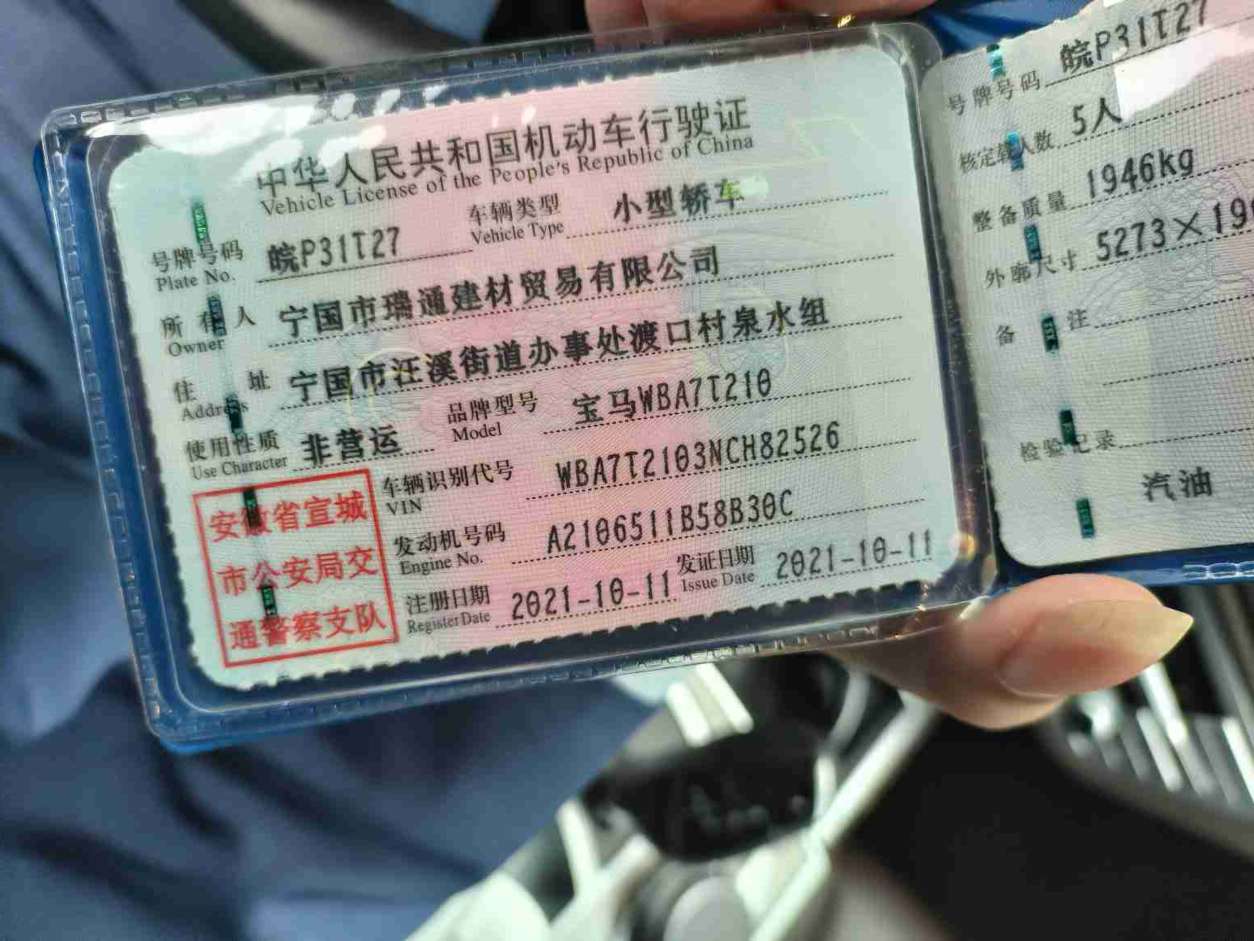 中华人民共和国机动车行驶证
Vehicle License of the People's Republic of China
号牌号码 皖P31T27 车辆类型 小型轿车
Plate No. Vehicle Type
所有人 宁国市瑞通建材贸易有限公司
Owner
住址 宁国市汪溪街道办事处渡口村泉水组
Address
使用性质 非营运 品牌型号 宝马WBA7T210
Use Character Model
车辆识别代号 WBA7T2103NCH82526
VIN
发动机号码 A2106511B58B30C
Engine No.
注册日期 2021-10-11 发证日期 2021-10-11
Register Date Issue Date
安徽省宣城
市公安局交
通警察支队
号牌号码 皖P31T27
核定载人数 5人
整备质量 1946kg
外廓尺寸 5273×19
备注
检验记录
汽油